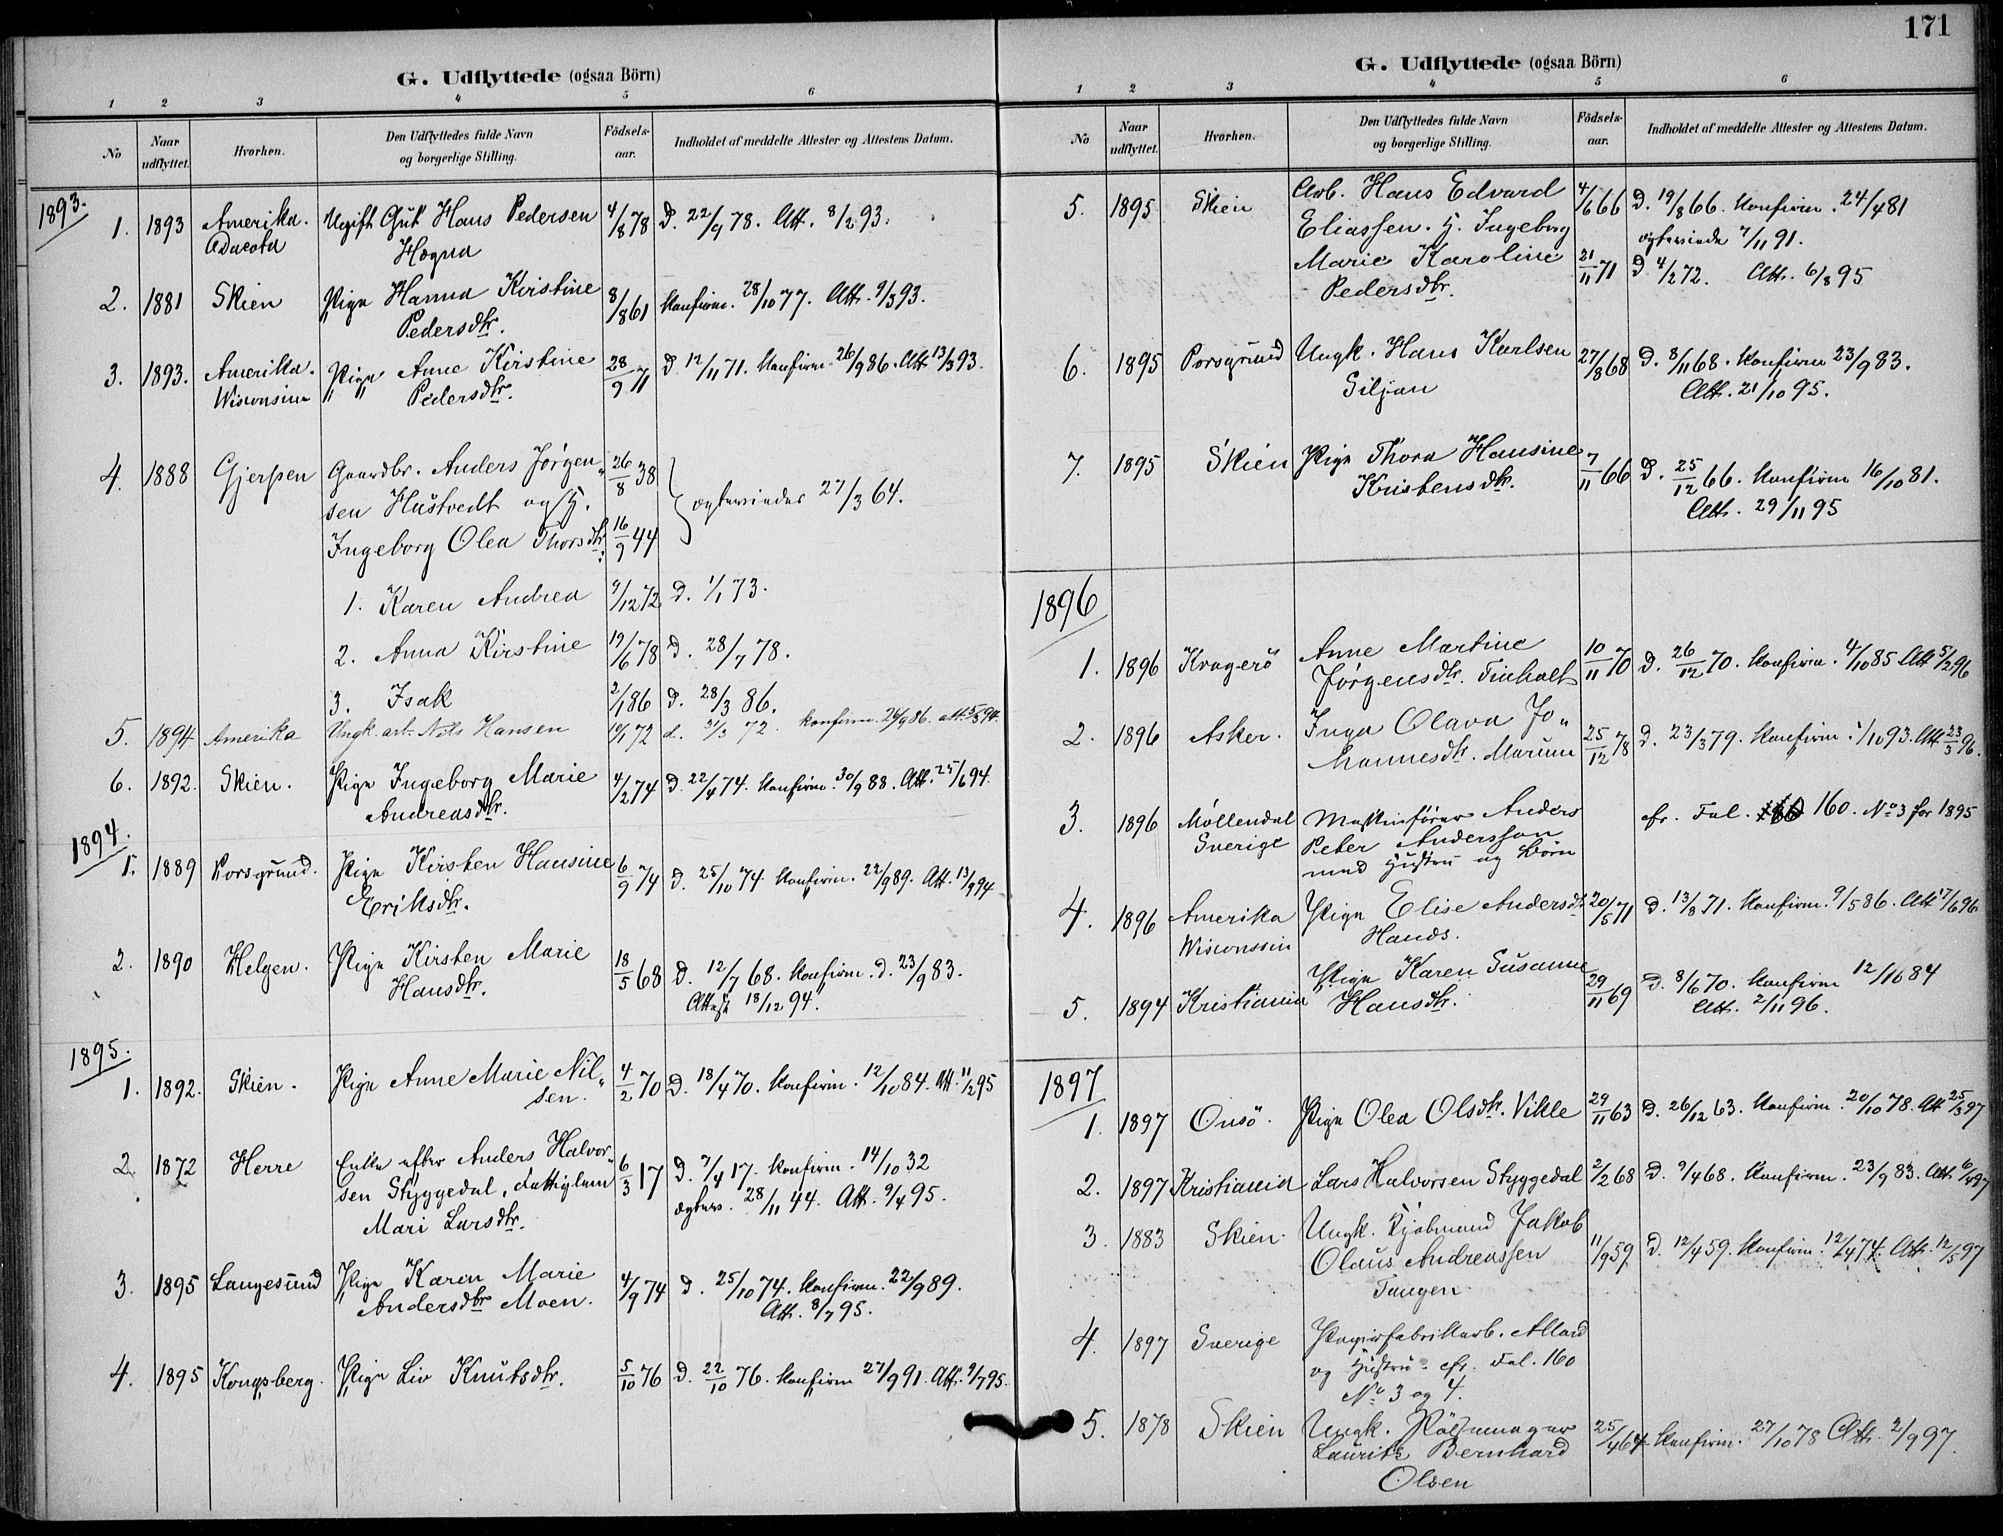 G. Udflyttede (ogsaa Börn)
1 2 3 4 5 6
No
Naar udflyttet.
Hvorhen.
Den Udflyttedes fulde Navn og borgerlige Stilling.
Födsels-aar.
Indholdet af meddelte Attester og Attestens Datum.
1893.
1. 1893 Amerika. Ugift Gut Hans Pedersen 4/8 78 D. 22/9 78. Att. 8/2 93.
Dacota Hogna
2. 1881 Skien Pige Hanna Kirstine 8/8 61 konfirm. 28/10 77. Att. 9/3 93.
Pedersdtr.
3. 1893. Amerika. Pige Anne Kirstine 28/9 71 D. 12/11 71. konfirm. 26/9 86. Att 13/3 93.
Wisconsin Pedersdtr.
4. 1888 Gjerpen Gaardbr. Anders Jörgen- 26/8 38
sen Hustvedt og H. ægteviedes 27/3 64.
Ingeborg Olea Thorsdtr. 16/9 44
1. Karen Andrea 9/12 72 D. 1/1 73.
2. Anna Kirstine 19/6 78 D. 28/7 78.
3. Isak 2/1 86 D. 28/3 86.
5. 1894 Amerika Ungk. arb. Nils Hansen 19/1 72 d. 31/3 72. konfirm. 26/9 86. att. 5/3 94.
6. 1892. Skien. Pige Ingeborg Marie 4/2 74 D. 22/4 74. konfirm. 30/9 88. Att. 25/6 94.
Andreasdtr.
1894.
1. 1889 Porsgrund. Pige Kirsten Hansine 6/9 74 D. 25/10 74 konfirm. 22/9 89. Att. 13/9 94
Eriksdtr.
2. 1890 Helgen. Pige Kirsten Marie 18/5 68 D. 12/7 68. konfirm. d. 23/9 83.
Hansdtr. Attest 18/12 94.
1895.
1. 1892. Skien. Pige Anne Marie Nil- 4/2 70 D. 18/4 70. konfirm. 12/10 84. Att. 11/2 95
sen.
2. 1872 Herre Enke efter Anders Halvor- 6/3 17 D. 7/4 17. konfirm. 14/10 32
sen Styggedal, fattiglem ægtev. 28/11 44. Att. 9/4 95.
Mari Larsdtr.
3. 1895 Langesund Pige Karen Marie 4/9 74 D. 25/10 74. konfirm. 22/9 89.
Andersdtr Moen. Att. 8/7 95.
4. 1895 Kongsberg. Pige Liv Knutsdtr. 5/10 76 D. 22/10 76. konfirm 27/9 91. Att. 9/7 95.
171
G. Udflyttede (ogsaa Börn)
1 2 3 4 5 6
No
Naar udflyttet.
Hvorhen.
Den Udflyttedes fulde Navn og borgerlige Stilling.
Födsels-aar.
Indholdet af meddelte Attester og Attestens Datum.
5. 1895 Skien Arb. Hans Edvard 4/6 66 D. 19/8 66. konfirm. 24/4 81
Eliassen. H. Ingeborg ægteviede 7/11 91.
Marie Karoline 21/11 71 D 4/2 72. Att. 6/8 95
Pedersdtr.
6. 1895 Porsgrund Ungk. Hans Karlsen 27/8 68 D. 8/11 68. konfirm 23/9 83.
Siljan Att. 21/10 95.
7. 1895 Skien Pige Thora Hansine 7/11 66 D. 25/12 66. konfirm 16/10 81.
Kristensdtr. Att. 29/11 95
1896
1. 1896 Kragerö Anne Martine 10/11 70 D. 26/12 70. konfirm. 4/10 85 Att 5/2 96
Jörgensdtr. Tinholt
2. 1896 Asker. Inga Olava Jo- 25/12 78 D. 23/3 79. konfirm. 1/10 93. Att 23/3 96.
hannesdtr. Marum
3. 1896 Möllendal Maskinförer Anders cfr. Fol. 160. No 3 for 1895
Sverige Peter Andersson
med Hustru og Börn
4. 1896 Amerika Pige Elise Andersdtr 20/5 71 D. 13/8 71. konfirm. 9/5 86. Att 17/6 96
Wisconssin Hands.
5. 1894 Kristiania Pige Karen Susanne 29/11 69 D. 8/6 70. konfirm 12/10 84
Hansdtr. Att. 2/11 96.
1897
1. 1897 Onsö. Pige Olea Olsdtr. Vikle 29/11 63 D. 26/12 63. konfirm. 20/10 78. Att 25/3 97
2. 1897 Kristiania Lars Halvorsen Styggedal 2/2 68 D. 9/4 68. konfirm. 23/9 83. Att. 6/4 97
3. 1883 Skien. Ungk. Kjöbmand Jakob 11/9 59. D. 12/4 59. konfirm. 12/4 74. Att. 12/5 97
Olaus Andreassen
Tangen
4. 1897 Sverige Papirfabrikarb. Allard
og Hustru. cfr. Fol. 160
No 3 og 4.
5. 1878 Skien Ungk. Pölsemager 25/4 64 konfirm. 27/10 78 Att. 2/9 97.
Laurits Bernhard
Olsen